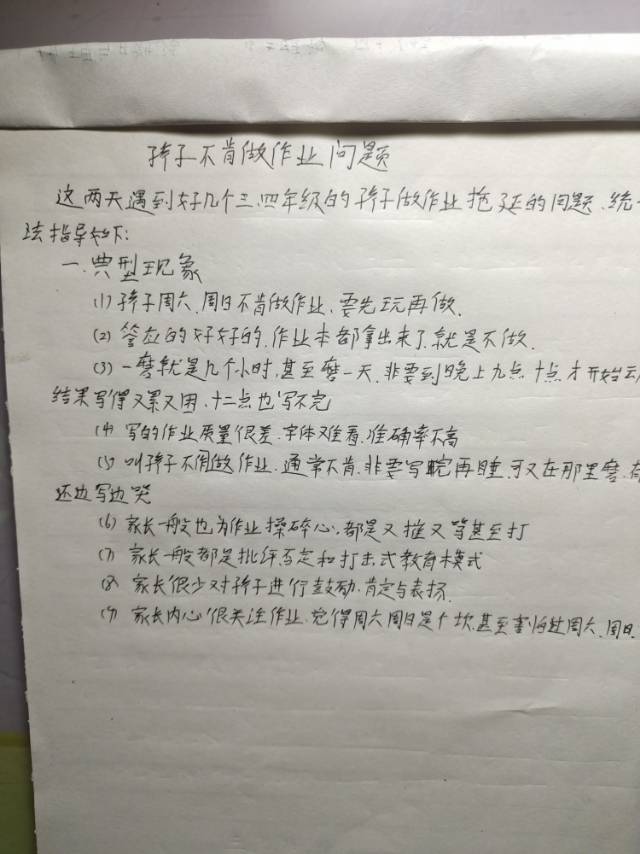 孩子不肯做作业问题
这两天遇到好几个三.四年级的孩子做作业拖延的问题.统一
法指导如下:
一.典型现象
(1) 孩子周六.周日不肯做作业.要先玩再做.
(2) 答应的好好的.作业本都拿出来了.就是不做.
(3) 一磨就是几个小时.甚至磨一天.非要到晚上九点十点才开始动
结果写得又累又困.十二点也写不完
(4) 写的作业质量很差.字体又难看.准确率不高
(5) 叫孩子不用做作业.通常不肯.非要写完再睡.可又在那里磨.
还边写边哭
(6) 家长一般也为作业操碎心.都是又推又等甚至打
(7) 家长一般都是批评否定和打击式教育模式
(8) 家长很少对孩子进行鼓励.肯定与表扬.
(9) 家长内心很关注作业.觉得周六周日是个坎.甚至害怕过周六.周日.